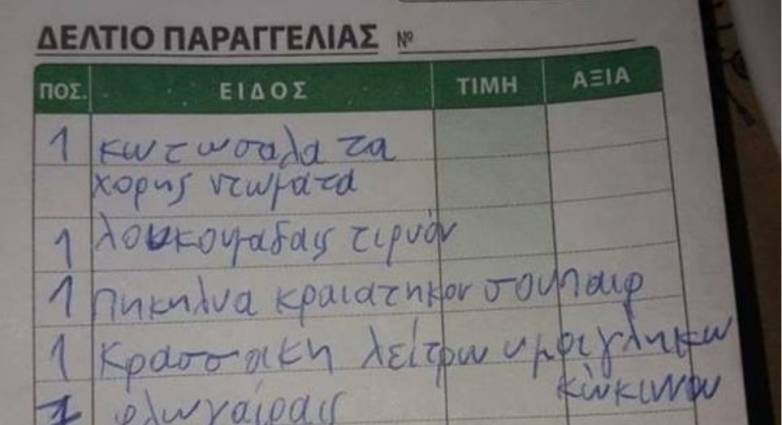 ΔΕΛΤΙΟ ΠΑΡΑΓΓΕΛΙΑΣ Νº
ΠΟΣ. ΕΙΔΟΣ ΤΙΜΗ ΑΞΙΑ
1 κωτωσαλα τα
χορης ντωματα
1 λουκουμαδαις τιρυόν
1 Πηκηλυα κραιατηκον σουπαιρ
1 κρασσακη λείτρω ημοιγληκω
κώκινου
1 φλωγαίραις